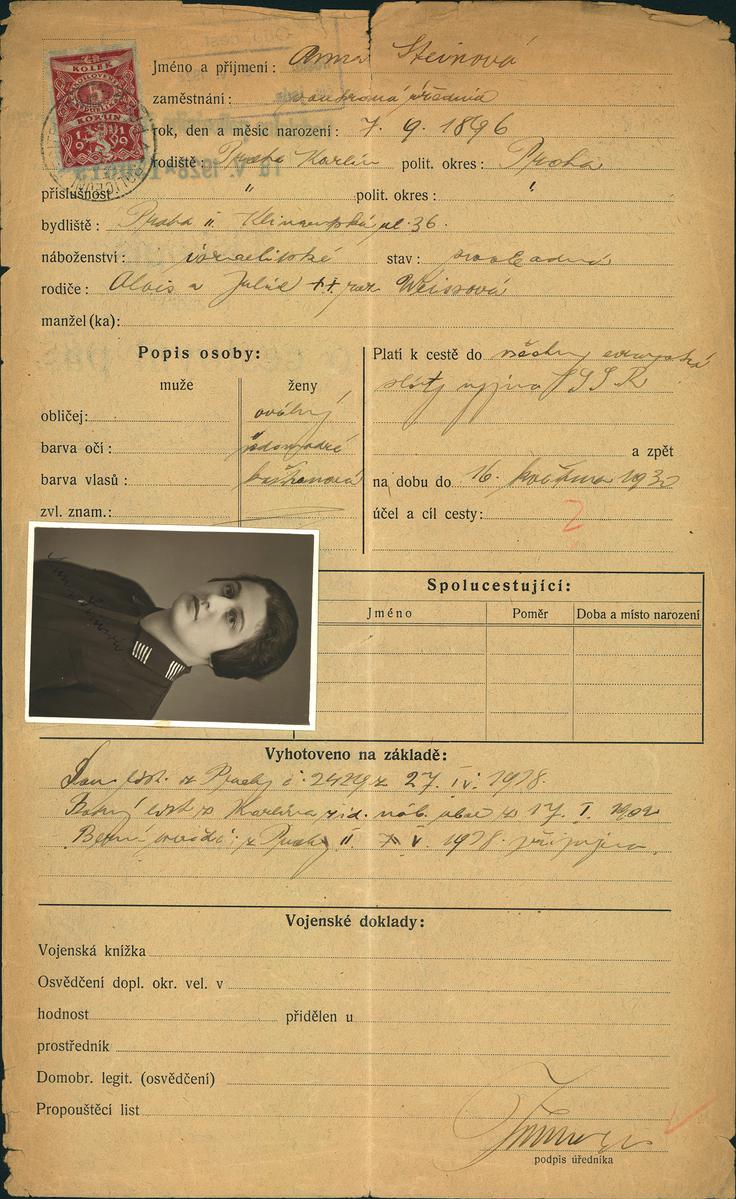 KOLEK
5
KORUN
1919
Jméno a příjmení: Anna Steinová
zaměstnání: soukromá úřednice
rok, den a měsíc narození: 7. 9. 1896
rodiště: Praha Karlín polit. okres: Praha
příslušnost " polit. okres: "
bydliště: Praha II. ul. 36.
náboženství: israelitské stav: svobodná
rodiče: Alois a Julie roz. Weissová
manžel (ka):
Popis osoby:
muže ženy
obličej: oválný
barva očí: šedomodré
barva vlasů: kaštanová
zvl. znam.:
Platí k cestě do všechny evropské
státy vyjma SSSR
a zpět
na dobu do 16. května 193
účel a cíl cesty:
2
Spolucestující:
Jméno Poměr Doba a místo narození
Vyhotoveno na základě:
Dom. list. z Prahy č. 2429 z 27. IV. 1928.
list z Karlína žid. náb. obce z 17. I. 1902
Berní z Prahy II V. 1928.
Vojenské doklady:
Vojenská knížka
Osvědčení dopl. okr. vel. v
hodnost přidělen u
prostředník
Domobr. legit. (osvědčení)
Propouštěcí list
podpis úředníka